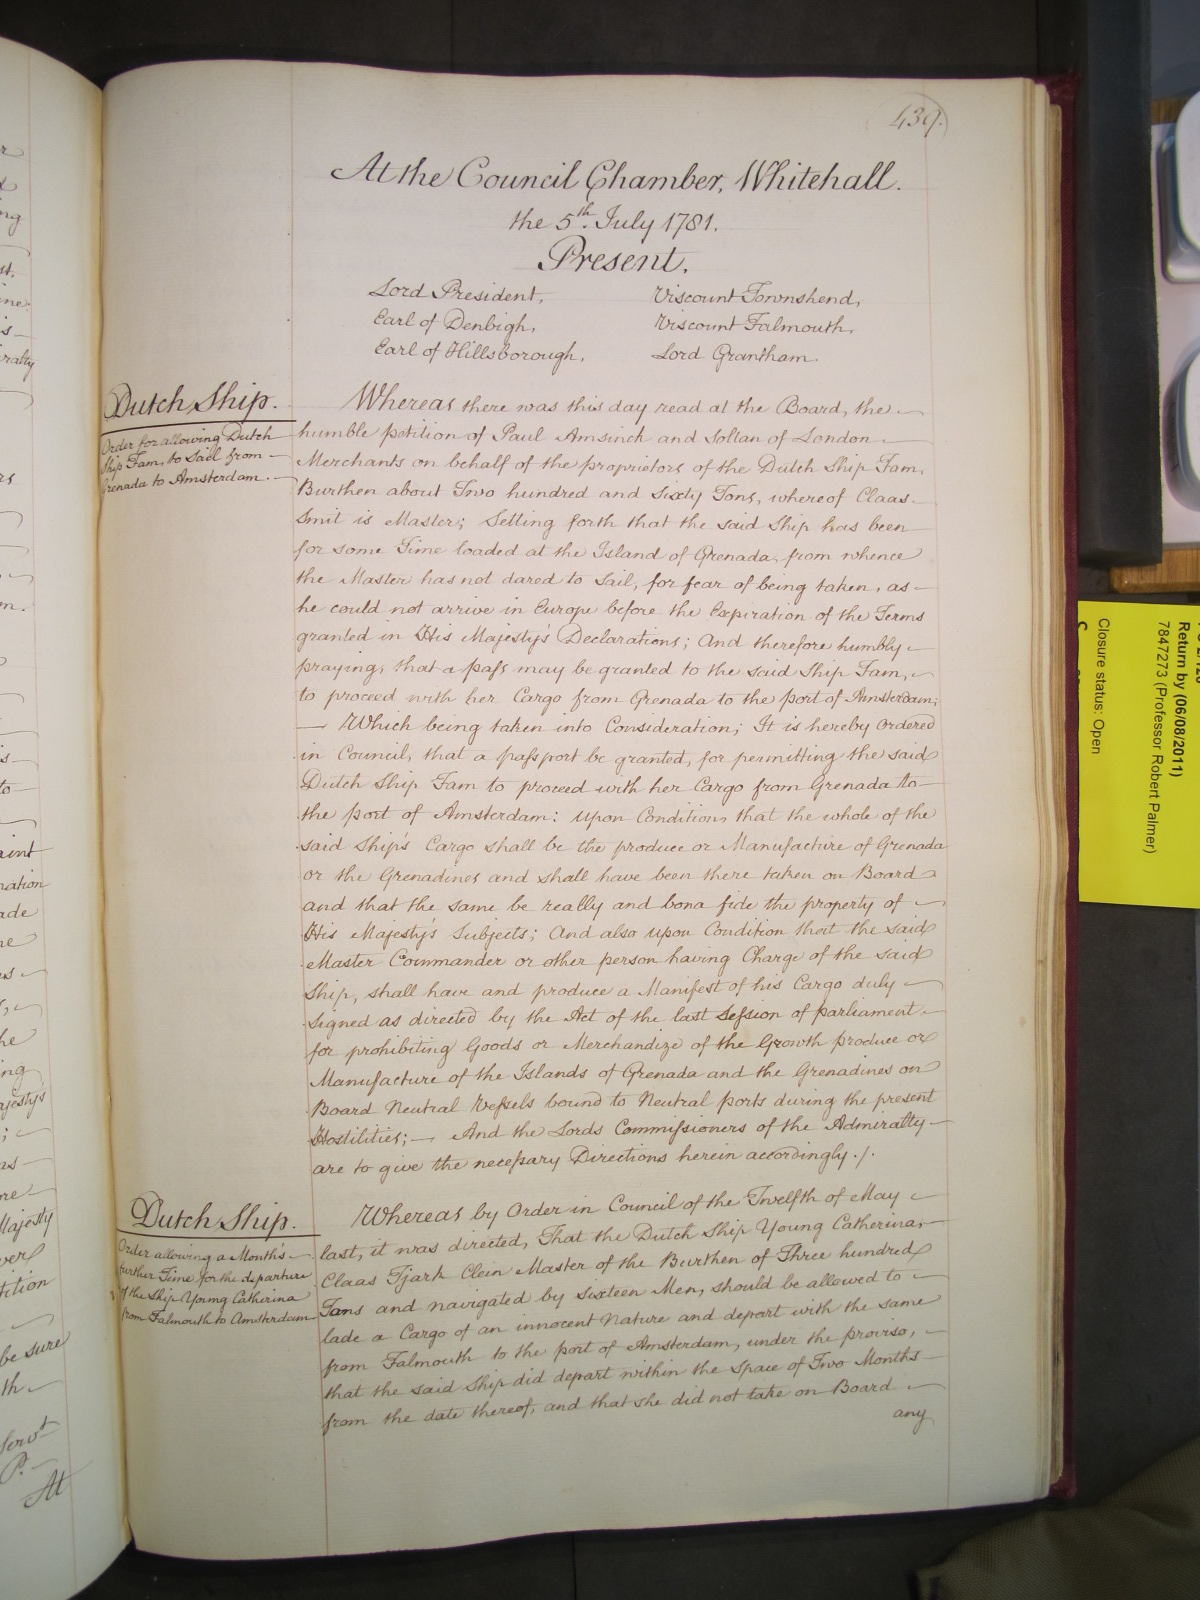 439.
At the Council Chamber, Whitehall.
the 5th. July 1781.
Present.
Lord President,
Earl of Denbigh,
Earl of Hillsborough,
Viscount Townshend,
Viscount Falmouth,
Lord Grantham.
Dutch Ship.
Order for allowing Dutch
Ship Fam, to Sail from
Grenada to Amsterdam.
Whereas there was this day read at the Board, the
humble petition of Paul Amsinck and Soltan of London
Merchants on behalf of the proprietors of the Dutch Ship Fam,
Burthen about Two hundred and Sixty Tons, whereof Claas
Smit is Master; Setting forth that the said Ship has been
for some Time loaded at the Island of Grenada, from whence
the Master has not dared to Sail, for fear of being taken, as
he could not arrive in Europe before the Expiration of the Terms
granted in His Majesty's Declarations; And therefore humbly
praying, that a pass may be granted to the said Ship Fam,
to proceed with her Cargo from Grenada to the port of Amsterdam;
— Which being taken into Consideration; It is hereby Ordered
in Council, that a passport be granted, for permitting the said
Dutch Ship Fam to proceed with her Cargo from Grenada to
the port of Amsterdam: upon Condition, that the whole of the
said Ship's Cargo shall be the produce or Manufacture of Grenada
or the Grenadines and shall have been there taken on Board
and that the same be really and bona fide the property of
His Majesty's Subjects; And also upon Condition that the said
Master Commander or other person having Charge of the said
Ship, shall have and produce a Manifest of his Cargo duly
Signed as directed by the Act of the last Session of parliament
for prohibiting Goods or Merchandize of the Growth produce or
Manufacture of the Islands of Grenada and the Grenadines on
Board Neutral Vessels bound to Neutral ports during the present
Hostilities; — And the Lords Commissioners of the Admiralty
are to give the necessary Directions herein accordingly ./.
Dutch Ship.
Order allowing a Month's
further Time for the departure
of the Ship Young Catherina
from Falmouth to Amsterdam
Whereas by Order in Council of the Twelfth of May
last, it was directed, That the Dutch Ship Young Catherina,
Claas Tjark Clein Master of the Burthen of Three hundred
Tons and navigated by Sixteen Men, should be allowed to
lade a Cargo of an innocent Nature and depart with the same
from Falmouth to the port of Amsterdam, under the proviso,
that the said Ship did depart within the Space of Two Months
from the date thereof, and that she did not take on Board
any
Return by (06/08/2011)
7847273 (Professor Robert Palmer)
Closure status: Open